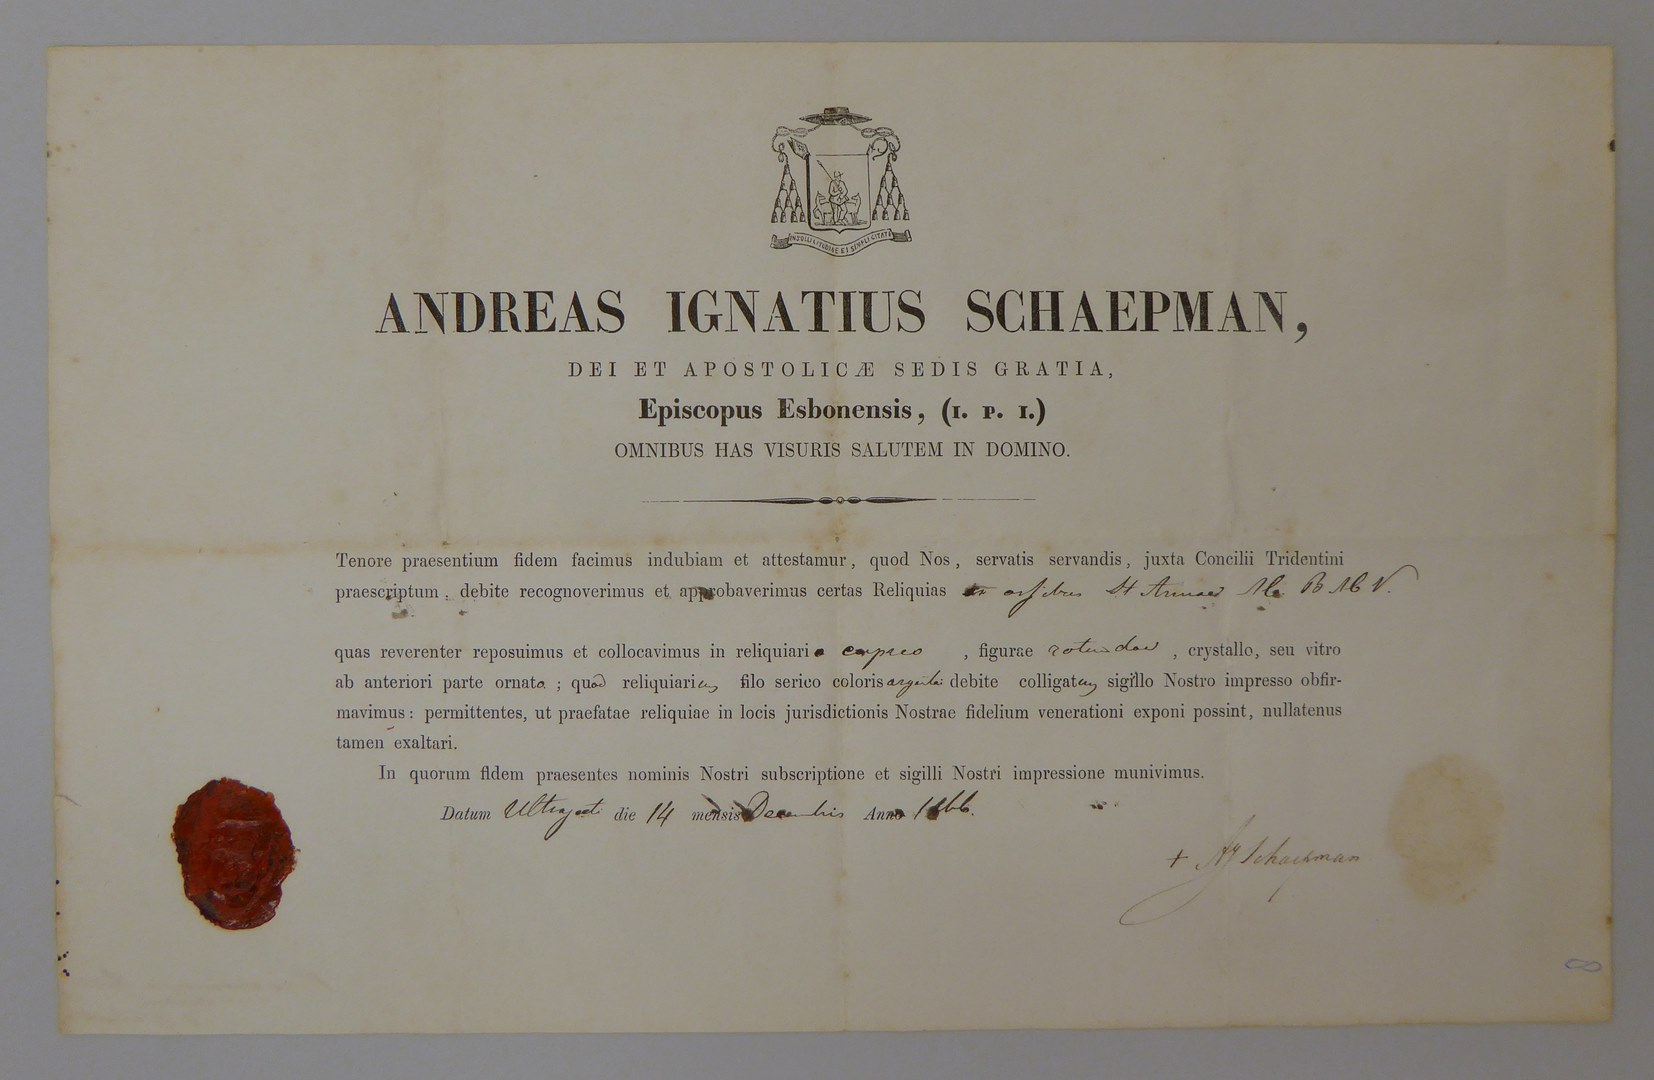 IN SOLLICITUDINE ET SIMPLICITATE
ANDREAS IGNATIUS SCHAEPMAN,
DEI ET APOSTOLICÆ SEDIS GRATIA,
Episcopus Esbonensis, (I. P. I.)
OMNIBUS HAS VISURIS SALUTEM IN DOMINO.
Tenore praesentium fidem facimus indubiam et attestamur, quod Nos, servatis servandis, juxta Concilii Tridentini
praescriptum, debite recognoverimus et approbaverimus certas Reliquias ex ossibus St Annae M. B M V.
quas reverenter reposuimus et collocavimus in reliquiario cupreo, figurae rotundae, crystallo, seu vitro
ab anteriori parte ornato; quod reliquiarium filo serico coloris argentei debite colligatum sigillo Nostro impresso obfir-
mavimus: permittentes, ut praefatae reliquiae in locis jurisdictionis Nostrae fidelium venerationi exponi possint, nullatenus
tamen exaltari.
In quorum fidem praesentes nominis Nostri subscriptione et sigilli Nostri impressione munivimus.
Datum Ultrajecti die 14 mensis Decembris Anno 1866.
+ AJ Schaepman
8